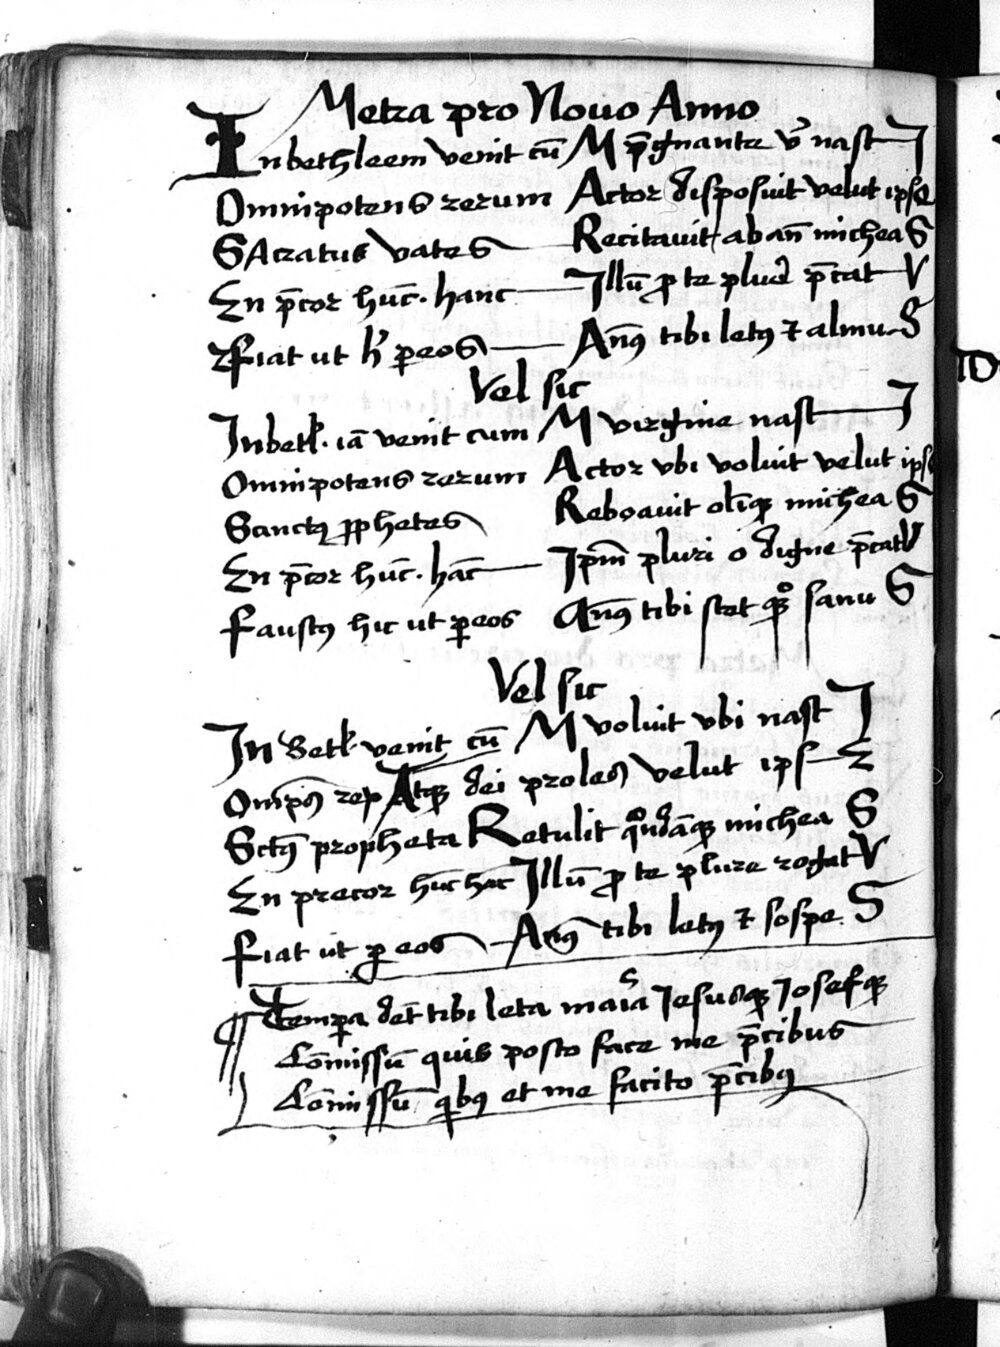 Metra pro Nouo Anno
In bethleem venit cū M p̄gnante v̄ nast I
Omnipotens rerum Actor disposuit velut ipse
SAcratus vates Recitauit ab an̄ michea S
En p̄cor huc̄. hanc Illū ꝓ te plued̛ p̄cat V
Fiat ut hͥ ꝑ eos Anꝰ tibi letꝰ ⁊ almu S
Vel sic
In betl̛. iā venit cum M virgine nast I
Omnipotens rerum Actor vbi voluit velut ips
Sanctꝰ ꝓphetes Reboauit oliꝗ michea S
En p̄cor huc̄. hac̄ Ip̄m pluri o digne p̄cat V
Faustꝰ hic ut ꝑ eos Anꝰ tibi stet qͦꝗ sanu S
Vel sic
In Betl̛. venit cū M voluit vbi nast I
Om̄pn̄s rerꝝ Atqꝫ dei proles velut ips E
Sctꝰ propheta Retulit qͦndāqꝫ michea S
En precor huc̄ hac̄ Illū ꝓ te plure rogat V
Fiat ut ꝑ eos Anꝰ tibi letꝰ ⁊ sospe S
¶ Temꝑa det̄ tibi leta maīa Iesusqꝫ Iosefqꝫ
Com̄issū quis posto face me p̄cibus
Com̄issū qͥbꝰ et me facito p̄cibꝰ